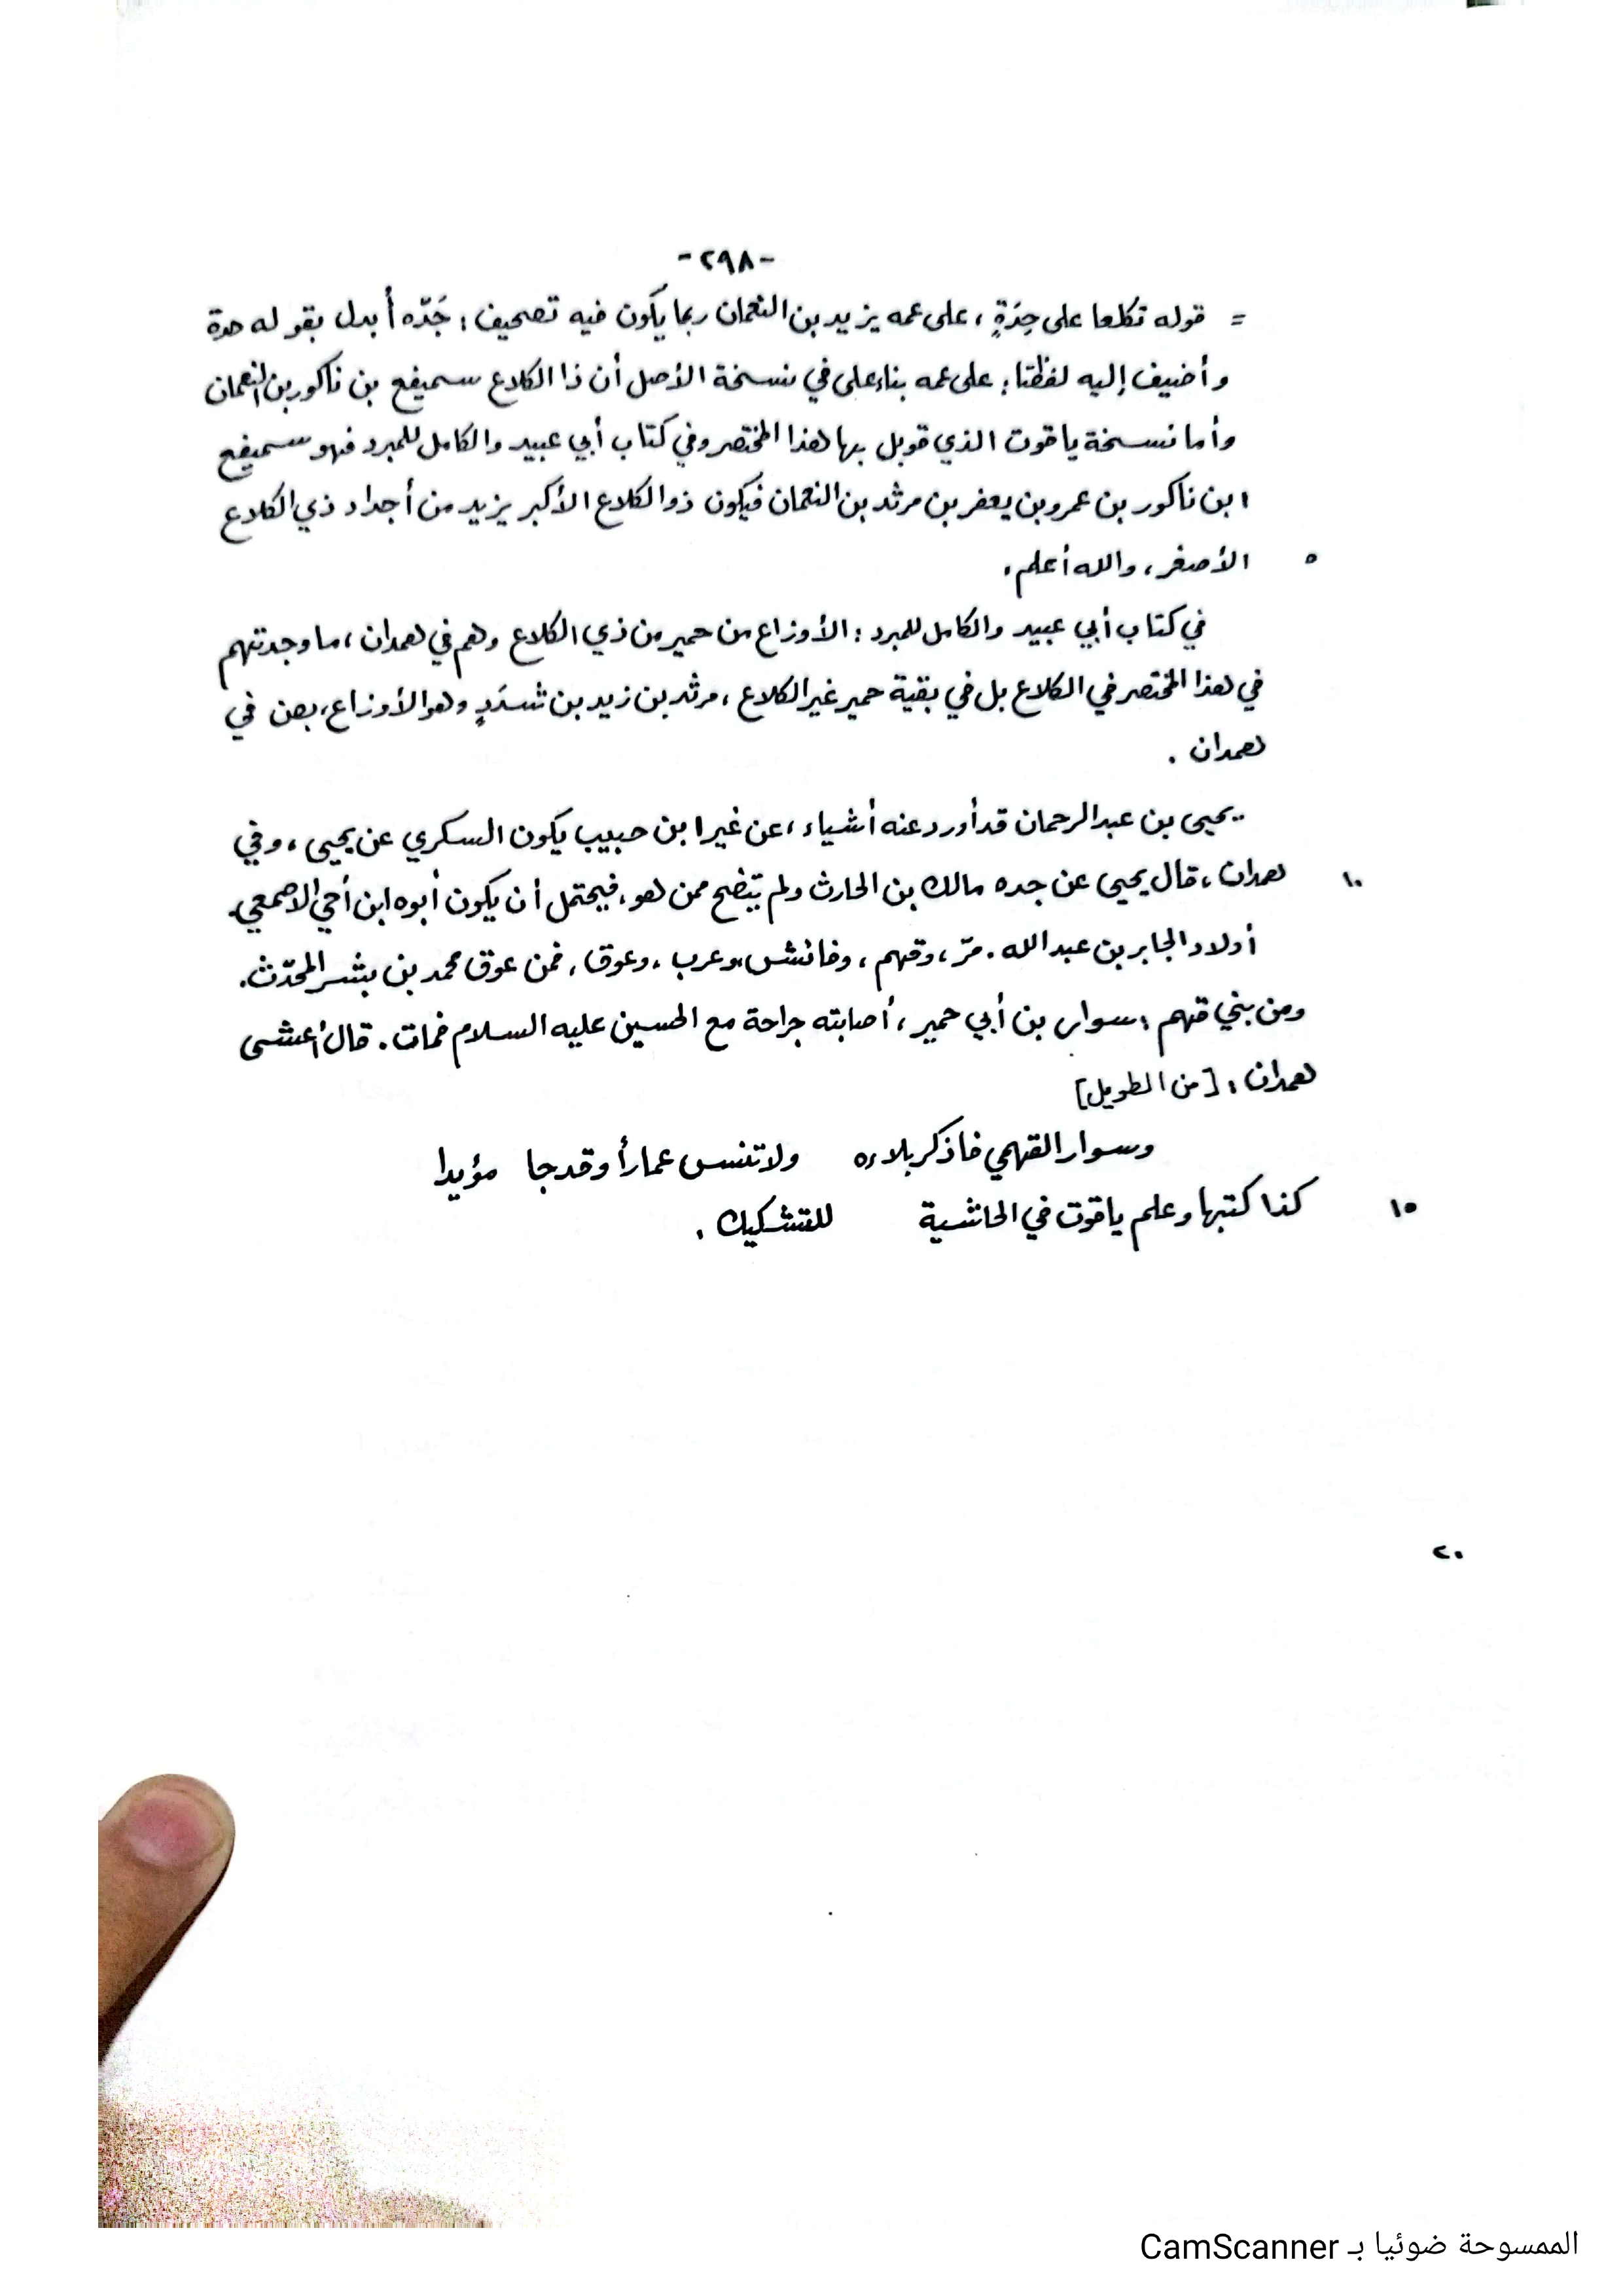 -٢٩٨-
= قوله تكلعا على حِدَةٍ ، على عمه يزيد بن النعمان ربما يكون فيه تصحيف : جَدّه أُبدل بقوله حدة
وأضيف إليه لفظتا : على عمه بناء على في نسخة الأصل أن ذا الكلاع سميفع بن ناكور بن النعمان
وأما نسخة ياقوت الذي قوبل بها هذا المختصر وفي كتاب أبي عبيد والكامل للمبرد فهو سميفع
ابن ناكور بن عمرو بن يعفر بن مرثد بن النعمان فيكون ذو الكلاع الأكبر يزيد من أجداد ذي الكلاع
٥ الأصغر ، والله أعلم .
في كتاب أبي عبيد والكامل للمبرد : الأوزاع من حمير من ذي الكلاع وهم في همدان ، ما وجدتهم
في هذا المختصر في الكلاع بل في بقية حمير غير الكلاع ، مرثد بن زيد بن شَدَدٍ وهو الأوزاع ، بصن في
همدان .
يحيى بن عبد الرحمان قد أورد عنه أشياء ، عن غير ابن حبيب يكون السكري عن يحيى ، وفي
١٠ همدان ، قال يحيى عن جده مالك بن الحارث ولم يتضح ممن هو ، فيحتمل أن يكون أبوه ابن أخي الأصمعي .
أولاد الجابر بن عبد الله . مرّ ، وقهم ، وفائش ، وعرب ، وعوق ، فمن عوق محمد بن بشر المحدّث .
ومن بني قهم : سوار بن أبي حمير ، أصابته جراحة مع الحسين عليه السلام فمات . قال أعشى
همدان : [من الطويل]
وسوار القهمي فاذكر بلاءه ولا تنس عماراً وقد جا مؤيدا
١٥ كذا كتبها وعلم ياقوت في الحاشية للتشكيك .
٢٠
الممسوحة ضوئيا بـ CamScanner